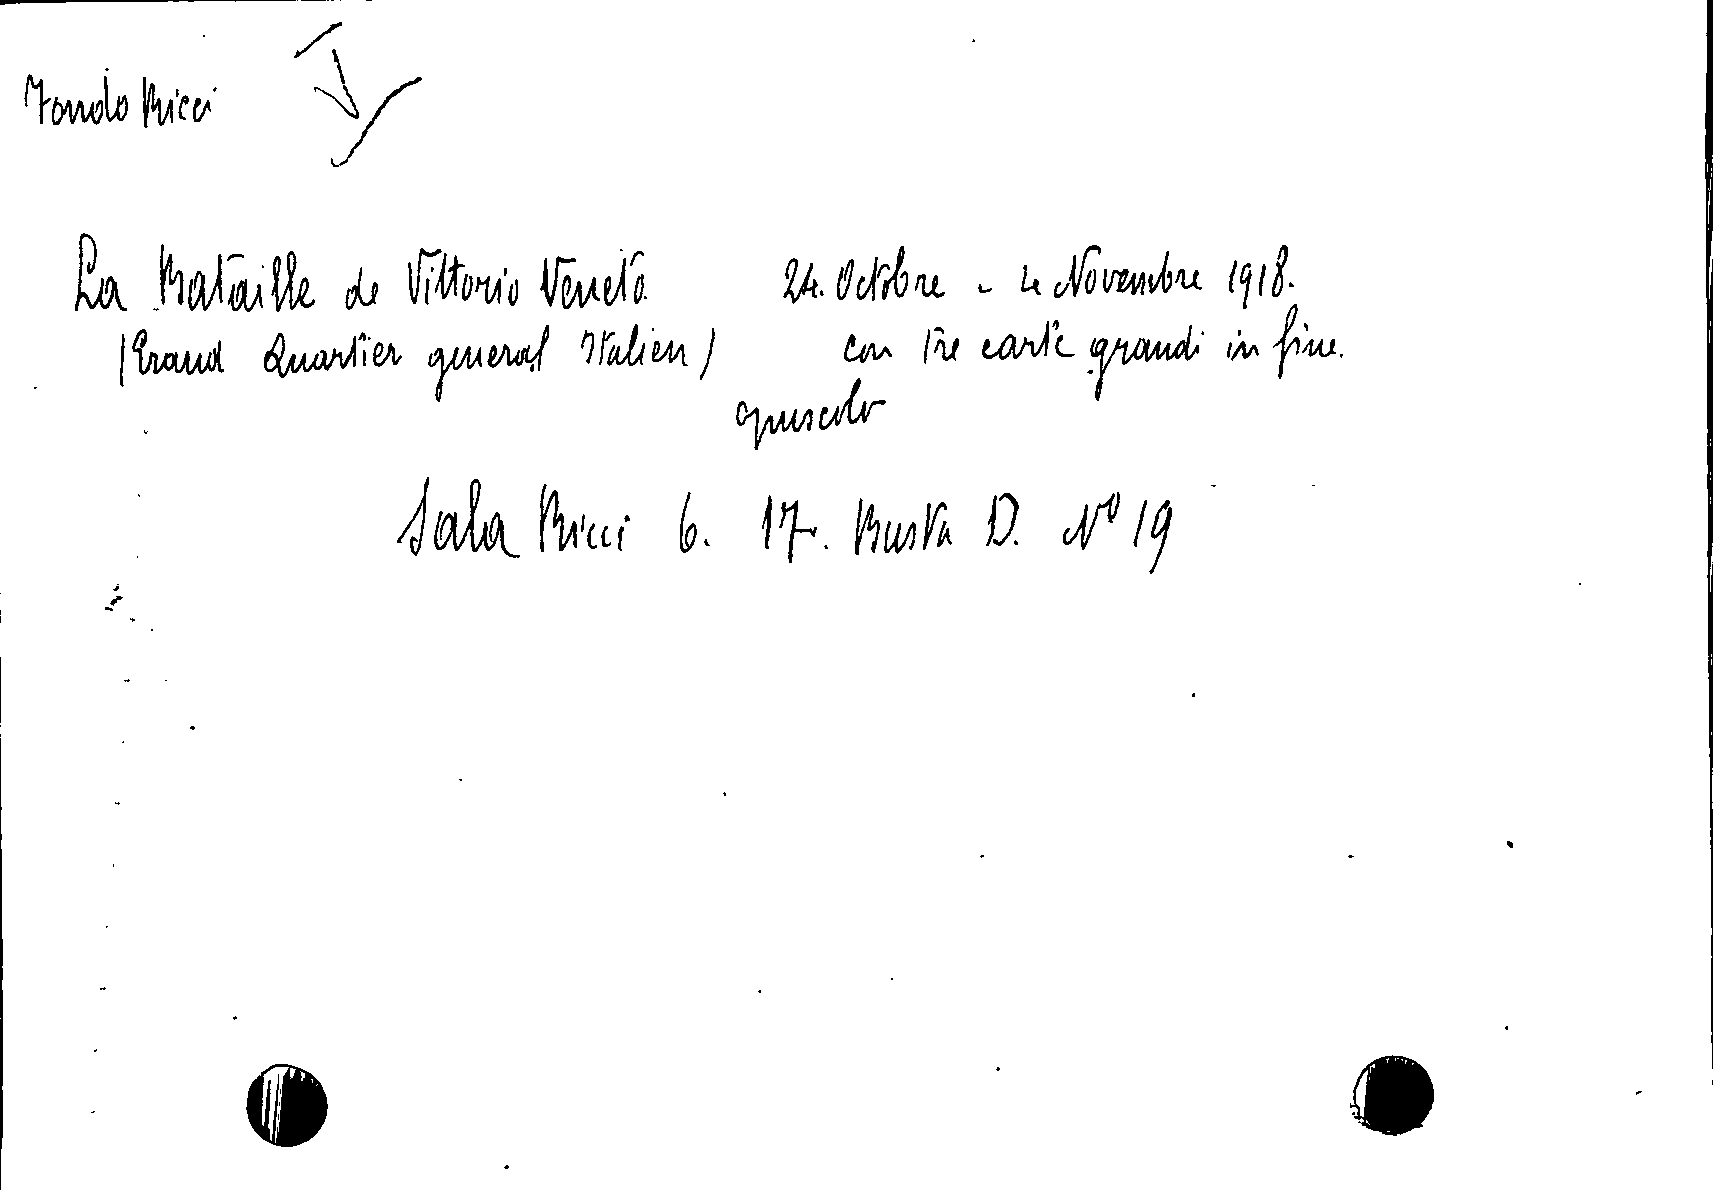 Fondo Ricci
La Bataille de Vittorio Veneto 24. Octobre - 4 Novembre 1918.
(Grand Quartier general Italien) con tre carte grandi in fine.
opuscolo
Sala Ricci 6. 17. Busta D. Nº 19